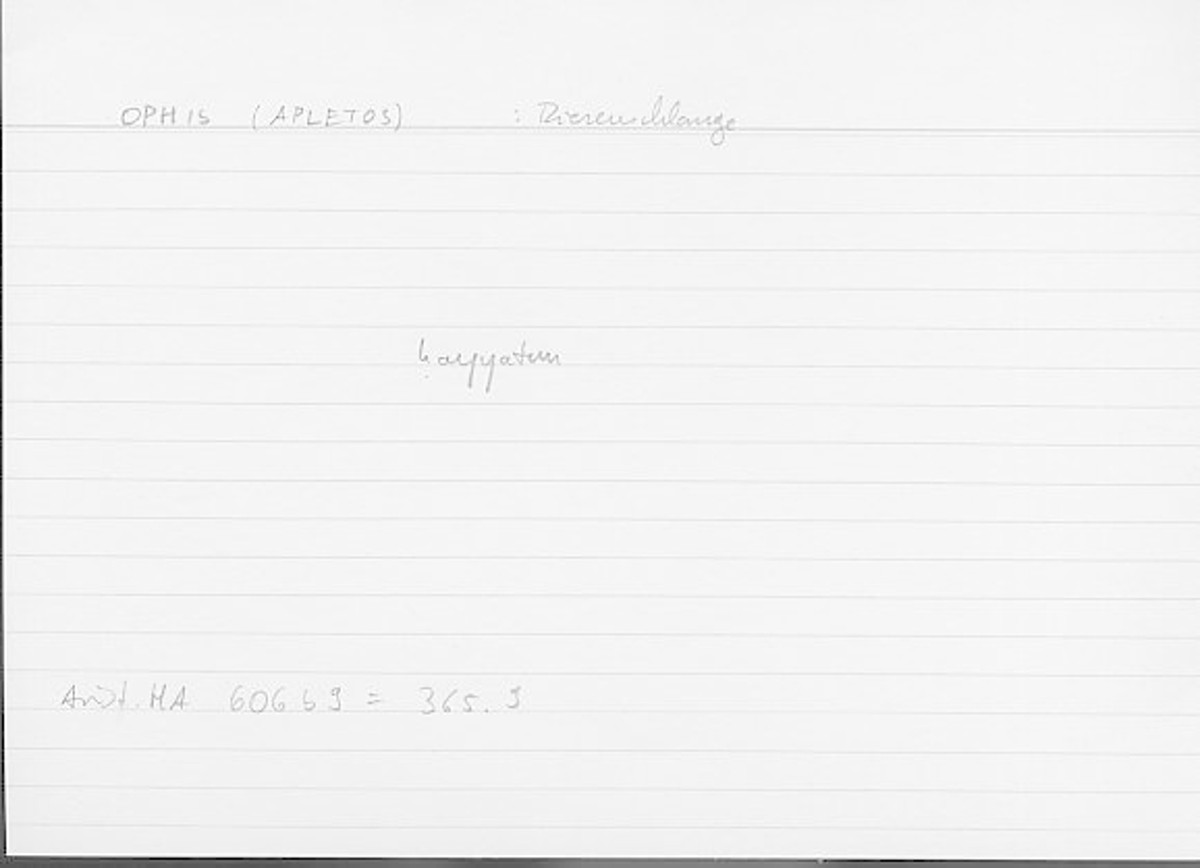 OPHIS (APLETOS) : Riesenschlange
ḥayyatun
Arist. HA 606 b 9 = 365. 9